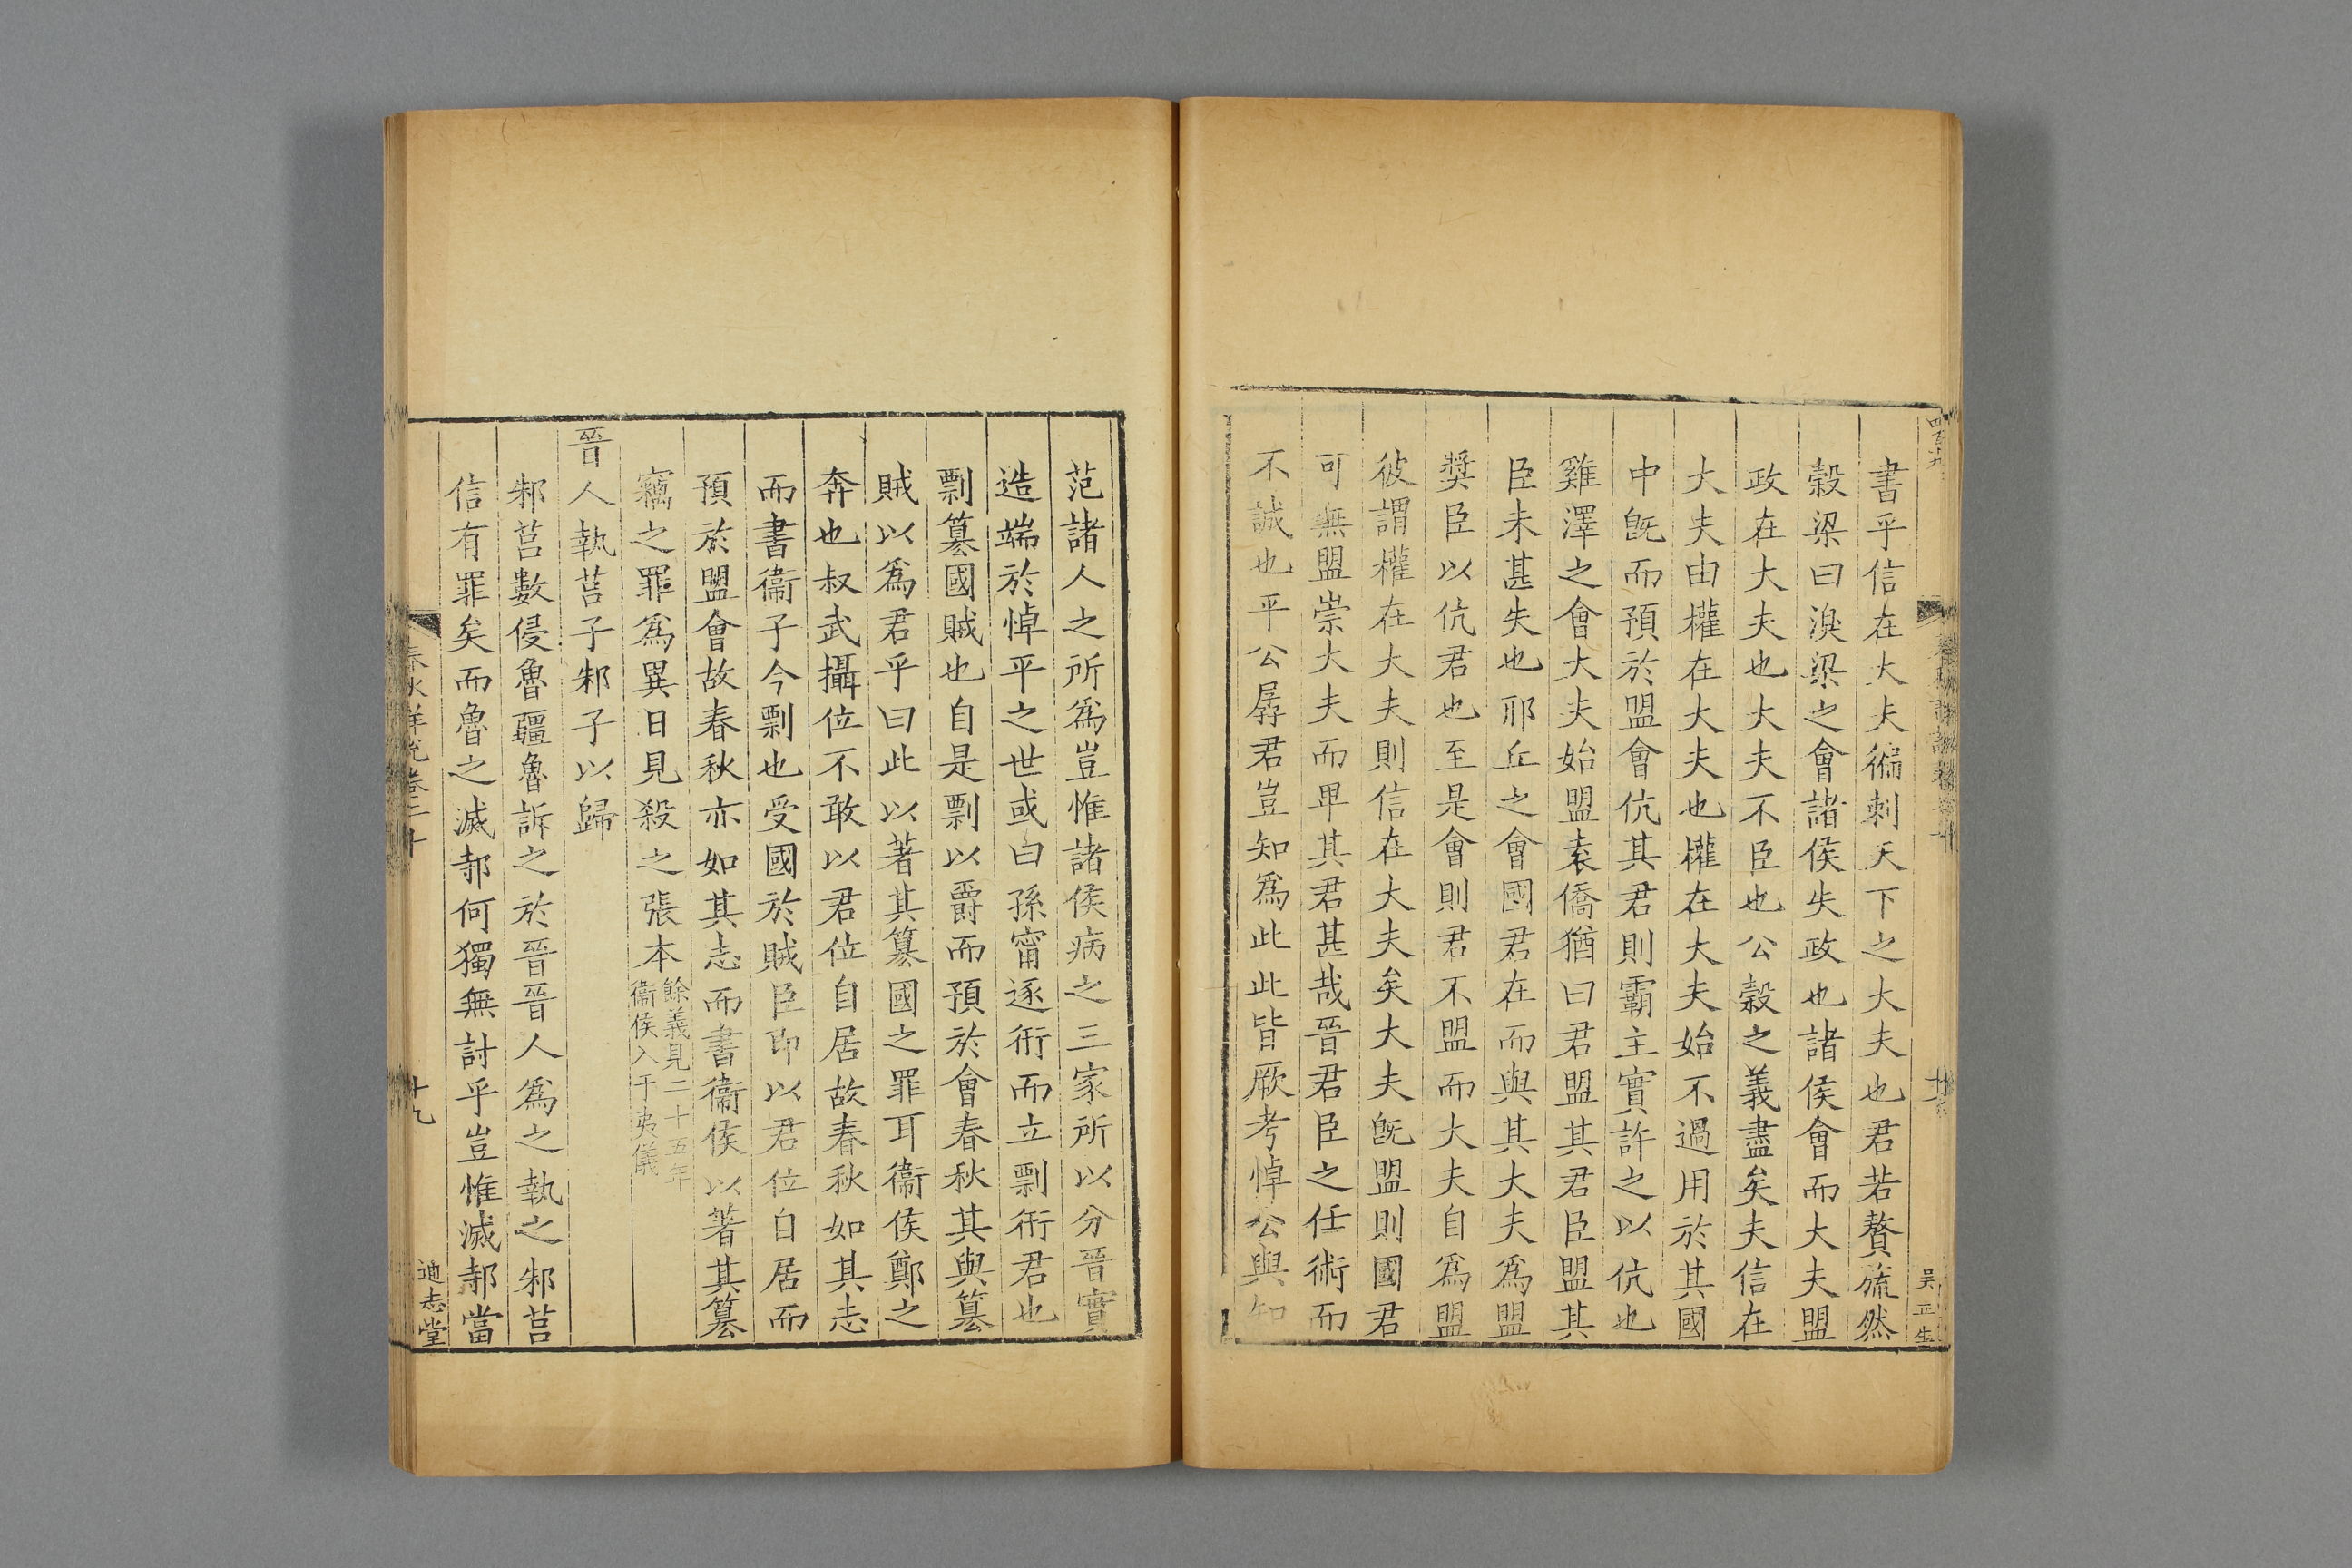 書乎信在大夫徧刺天下之大夫也君若贅旒然
穀梁曰湨梁之會諸侯失政也諸侯會而大夫盟
政在大夫也大夫不臣也公穀之義盡矣夫信在
大夫由權在大夫也權在大夫始不過用於其國
中旣而預於盟會伉其君則霸主實許之以伉也
雞澤之會大夫始盟袁僑猶曰君盟其君臣盟其
臣未甚失也邢丘之會國君在而與其大夫爲盟
奬臣以伉君也至是會則君不盟而大夫自爲盟
彼謂權在大夫則信在大夫矣大夫旣盟則國君
可無盟崇大夫而畀其君甚哉晉君臣之任術而
不誠也平公孱君豈知爲此此皆厥考悼公與知
范諸人之所爲豈惟諸侯病之三家所以分晉實
造端於悼平之世或曰孫甯逐衎而立剽衎君也
剽簒國賊也自是剽以爵而預於會春秋其與簒
賊以爲君乎曰此以著其簒國之罪耳衞侯鄭之
奔也叔武攝位不敢以君位自居故春秋如其志
而書衞子今剽也受國於賊臣卽以君位自居而
預於盟會故春秋亦如其志而書衞侯以著其簒
竊之罪爲異日見殺之張本
餘義見二十五年
衞侯入于夷儀
晉人執莒子邾子以歸
邾莒數侵魯疆魯訴之於晉晉人爲之執之邾莒
信有罪矣而魯之滅邿何獨無討乎豈惟滅邿當
春秋詳說卷二十
十九
迪志堂
吴正生